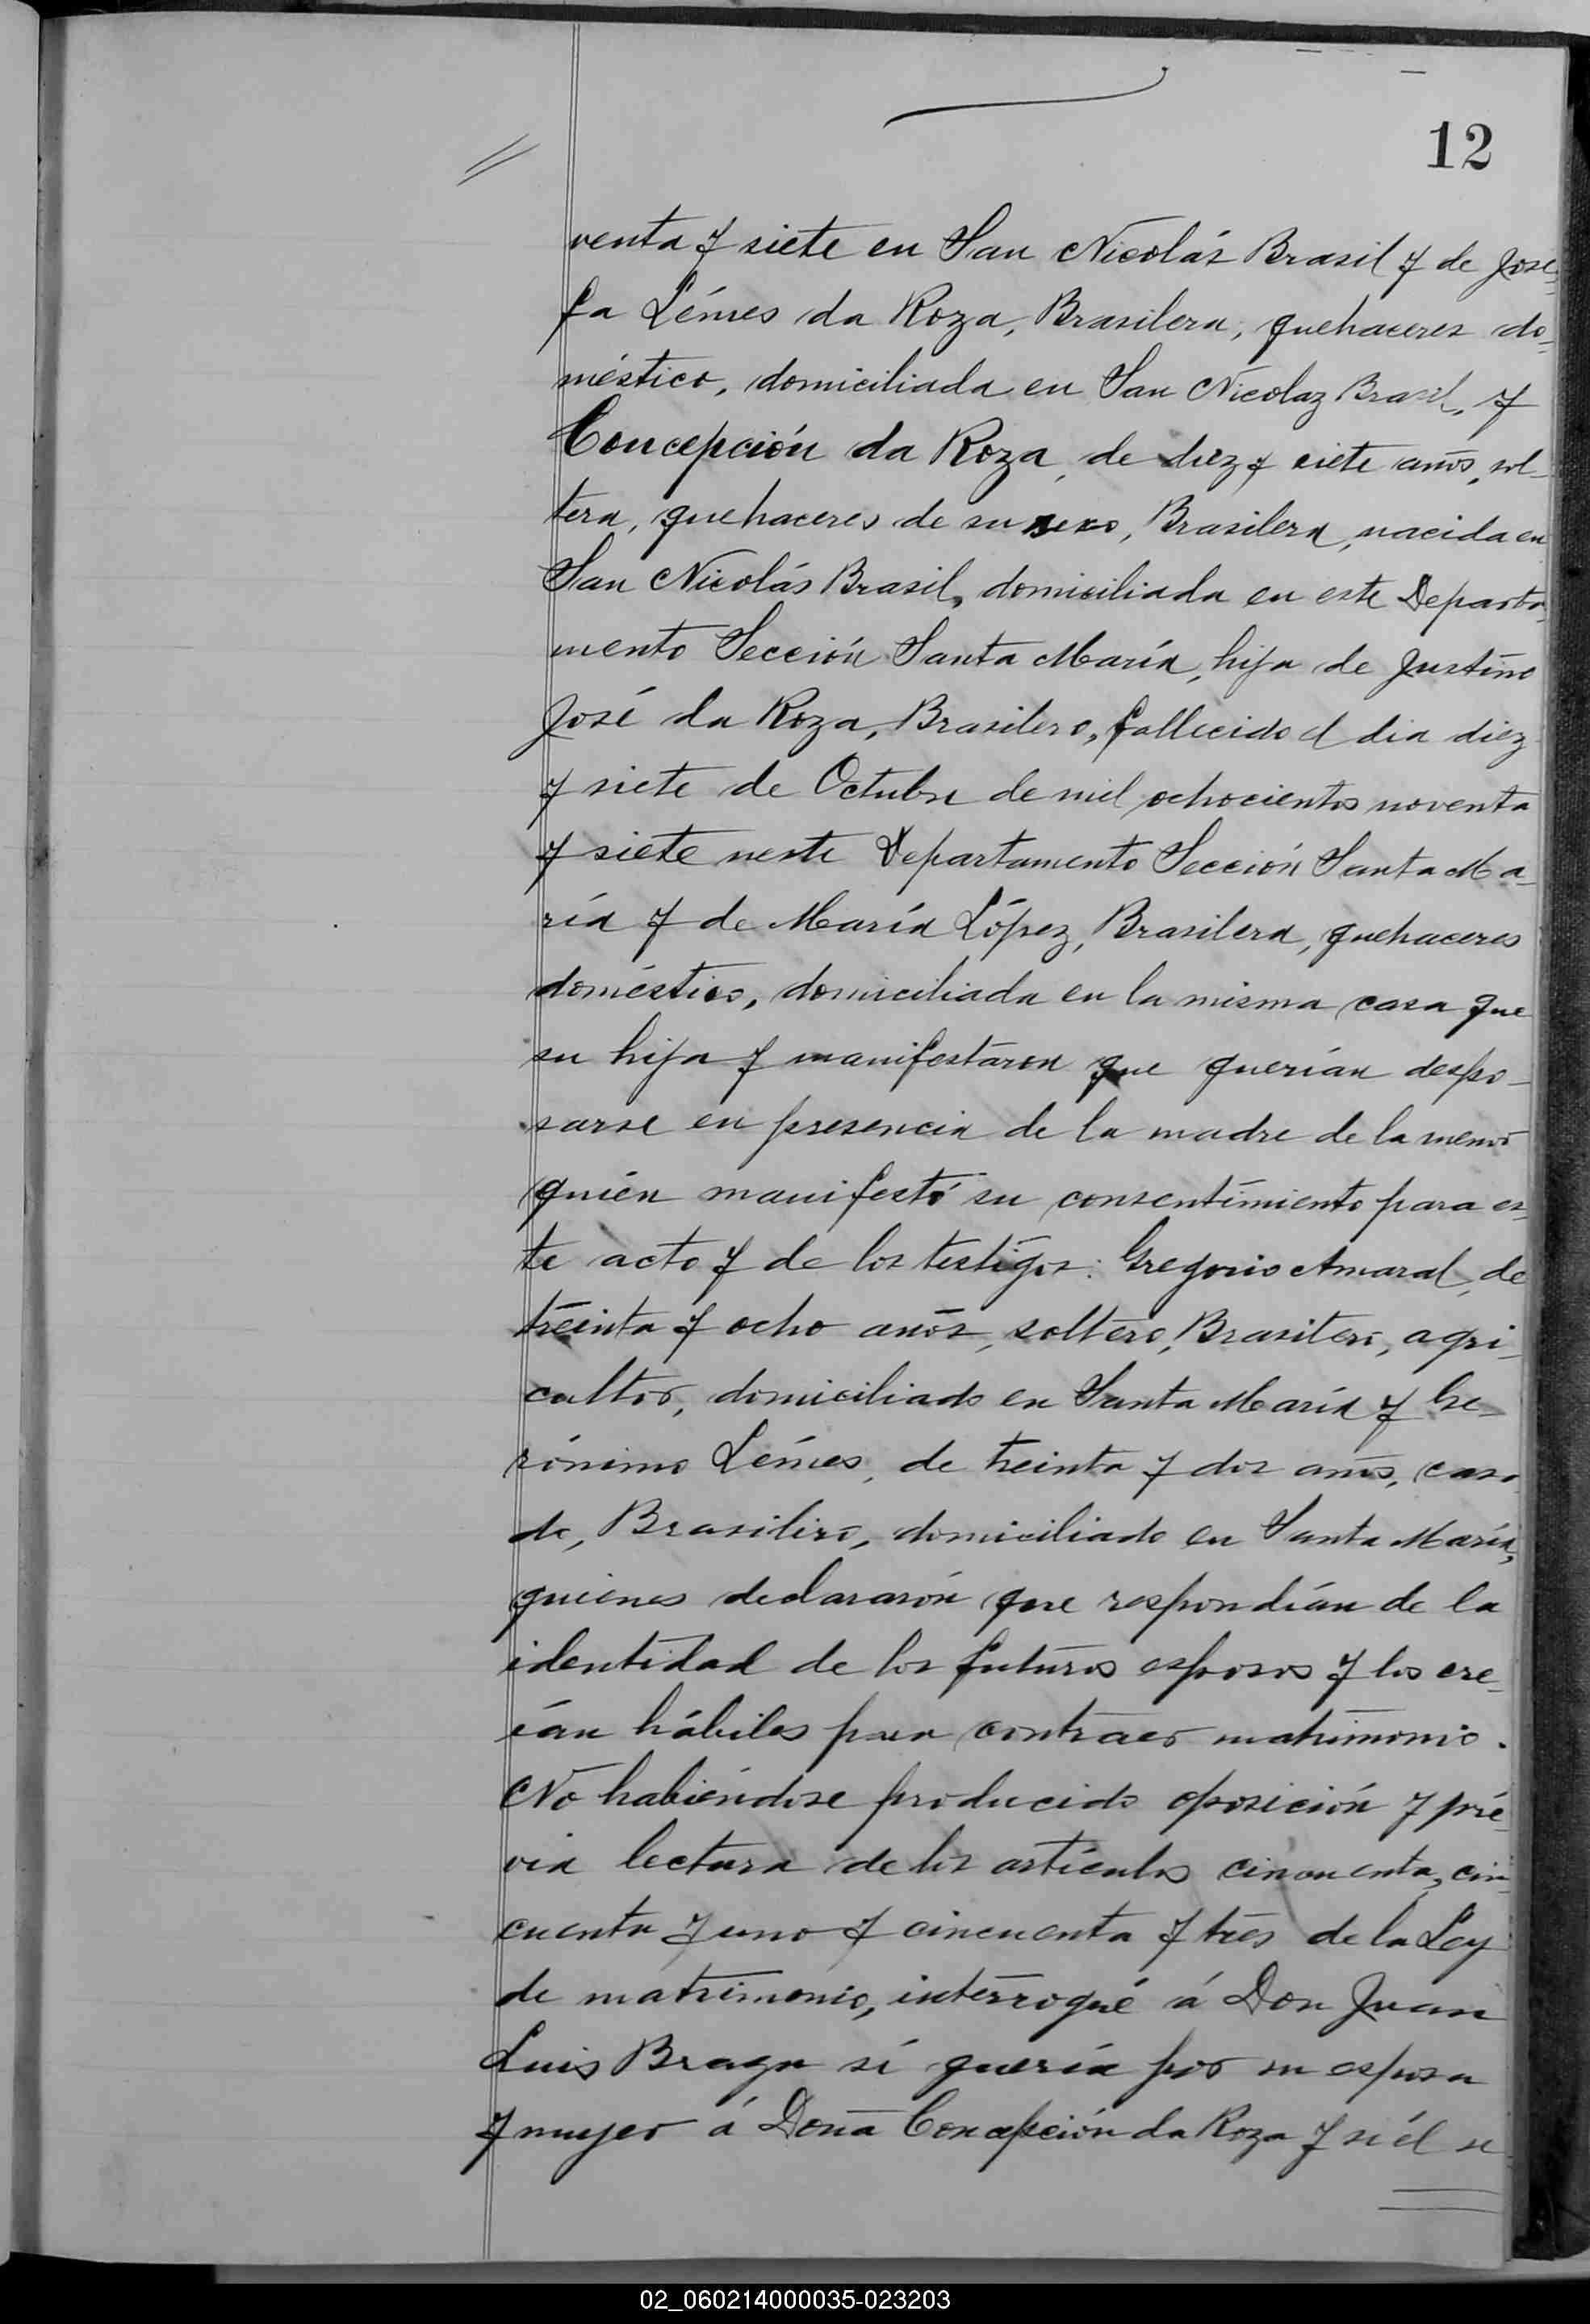 12
venta y siete en San Nicolás Brasil y de Jose-
fa Lémes da Roza, Brasilera, quehaceres do-
méstico, domiciliada en San Nicolaz Brasil, y
Concepción da Roza, de diez y siete años, sol-
tera, quehaceres de su sexo, Brasilera, nacida en
San Nicolás Brasil, domiciliada en este Departa-
mento Sección Santa María, hija de Justino
José da Roza, Brasilero, fallecido el dia diez
y siete de Octubre de mil ochocientos noventa
y siete neste Departamento Sección Santa Ma-
ría y de María López, Brasilera, quehaceres
doméstico, domiciliada en la misma casa que
su hija y manifestaron que querían despo-
sarse en presencia de la madre de la menor
quién manifestó su consentimiento para es-
te acto y de los testigos: Gregorio Amaral, de
treinta y ocho años, soltero, Brasilero, agri-
cultor, domiciliado en Santa María y Ge-
rónimo Lémes, de treinta y dos años, casa-
do, Brasilero, domiciliado en Santa María,
quienes declararón que respondían de la
identidad de los futuros esposos y los cre-
ían hábiles para contraer matrimonio.
No habiéndose producido oposición y pré-
via lectura de los artículos cincuenta, cin-
cuenta y uno y cincuenta y tres de la Ley
de matrimonio, interrogué á Don Juan
Luis Braga sí quería por su esposa
y mujer á Doña Concepción da Roza y si él se
02_060214000035-023203